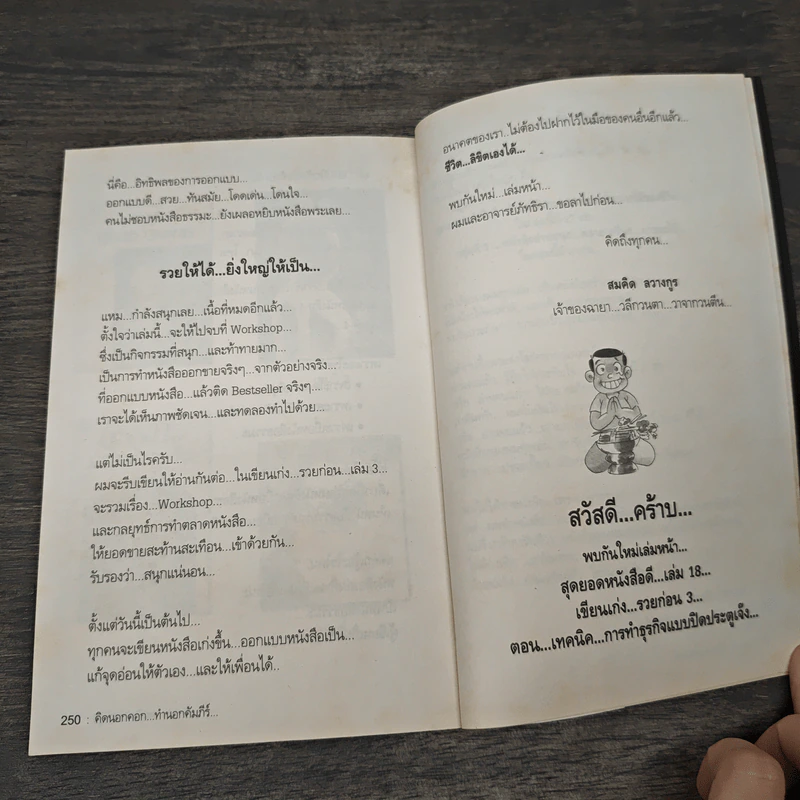 นี่คือ...อิทธิพลของการออกแบบ...
ออกแบบดี...สวย...ทันสมัย...โดดเด่น...โดนใจ...
คนไม่ชอบหนังสือธรรมะ...ยังเผลอหยิบหนังสือพระเลย...
รวยให้ได้...ยิ่งใหญ่ให้เป็น...
แหม...กำลังสนุกเลย...เนื้อที่หมดอีกแล้ว...
ตั้งใจว่าเล่มนี้...จะให้ไปจบที่ Workshop...
ซึ่งเป็นกิจกรรมที่สนุก...และท้าทายมาก...
เป็นการทำหนังสือออกขายจริงๆ...จากตัวอย่างจริง...
ที่ออกแบบหนังสือ...แล้วติด Bestseller จริงๆ...
เราจะได้เห็นภาพชัดเจน...และทดลองทำไปด้วย...
แต่ไม่เป็นไรครับ...
ผมจะรีบเขียนให้อ่านกันต่อ...ในเขียนเก่ง...รวยก่อน...เล่ม 3...
จะรวมเรื่อง...Workshop...
และกลยุทธ์การทำตลาดหนังสือ...
ให้ยอดขายสะท้านสะเทือน...เข้าด้วยกัน...
รับรองว่า...สนุกแน่นอน...
ตั้งแต่วันนี้เป็นต้นไป...
ทุกคนจะเขียนหนังสือเก่งขึ้น...ออกแบบหนังสือเป็น...
แก้จุดอ่อนให้ตัวเอง...และให้เพื่อนได้..
250 : คิดนอกคอก...ทำนอกคัมภีร์...
อนาคตของเรา..ไม่ต้องไปฝากไว้ในมือของคนอื่นอีกแล้ว...
ชีวิต...ลิขิตเองได้...
พบกันใหม่...เล่มหน้า...
ผมและอาจารย์ภัทธิรา...ขอลาไปก่อน...
คิดถึงทุกคน...
สมคิด ลวางกูร
เจ้าของฉายา...วลีกวนตา...วาจากวนตีน...
สวัสดี...คร้าบ...
พบกันใหม่เล่มหน้า...
สุดยอดหนังสือดี...เล่ม 18...
เขียนเก่ง...รวยก่อน 3...
ตอน...เทคนิค...การทำธุรกิจแบบปิดประตูเจ๊ง...